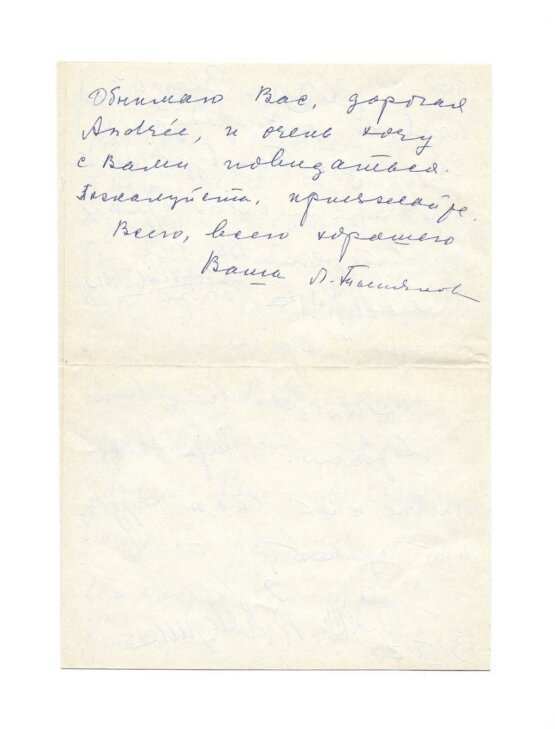 Обнимаю Вас, дорогая
Andrée, и очень хочу
с Вами повидаться.
Пожалуйста, приезжайте.
Всего, всего хорошего
Ваша Л.